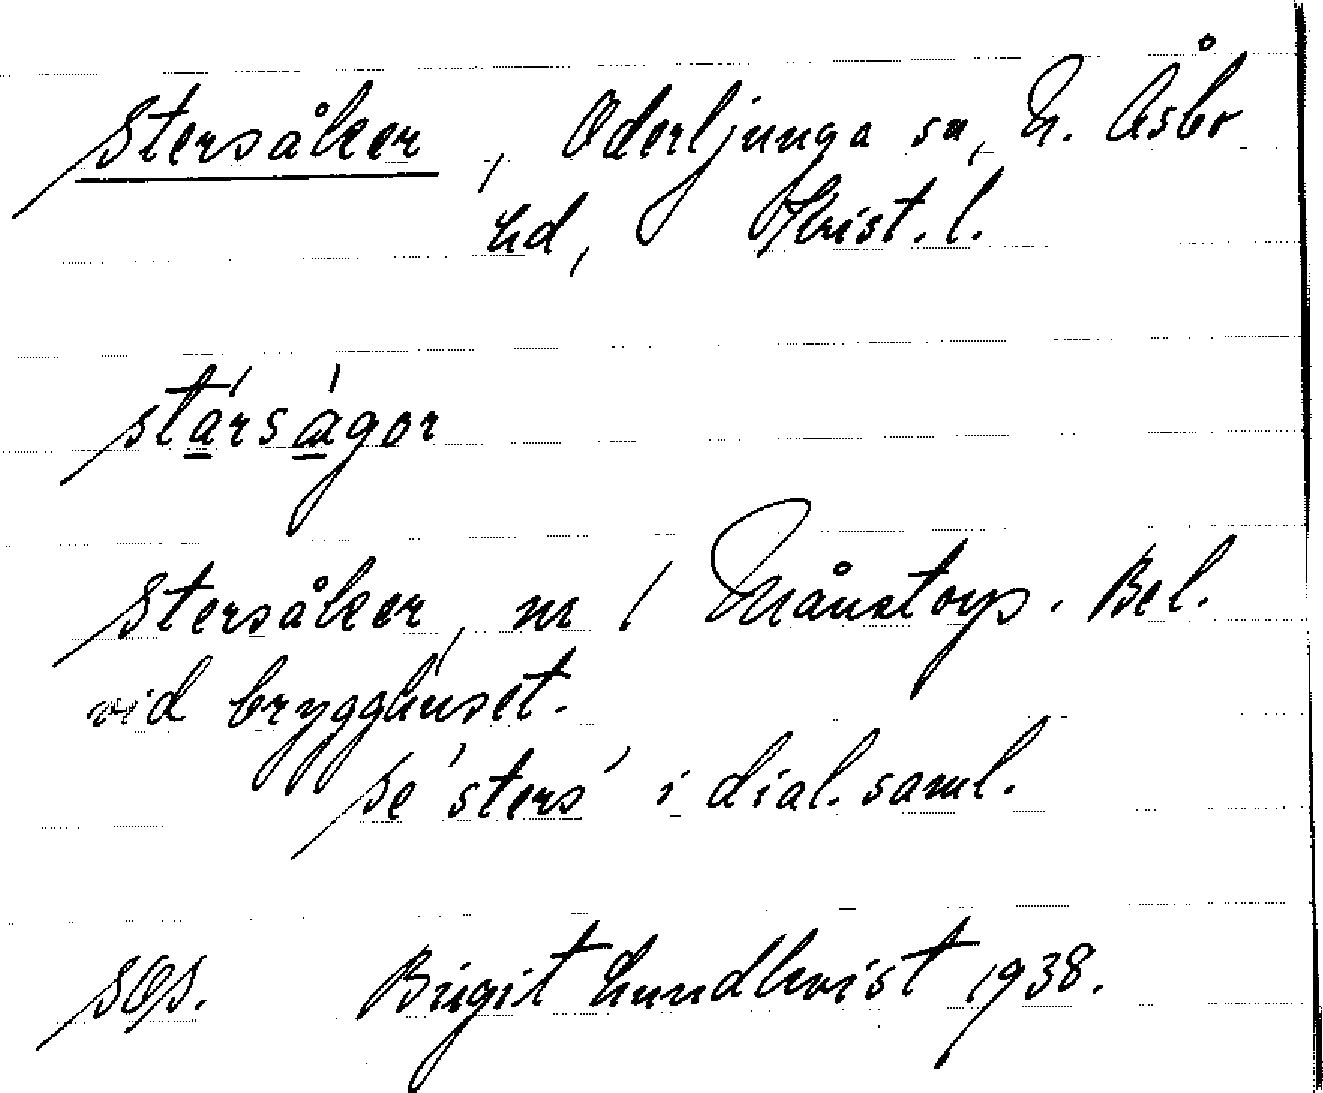 Stersåker, Oderljunga sn, N. Åsbo
hd, Krist. l.
stárságor
Stersåker, nr 1 Månstorp. Bel.
vid brygghuset.
Se 'sters' i dial. saml.
sgs. Birgit Lundkvist 1938.